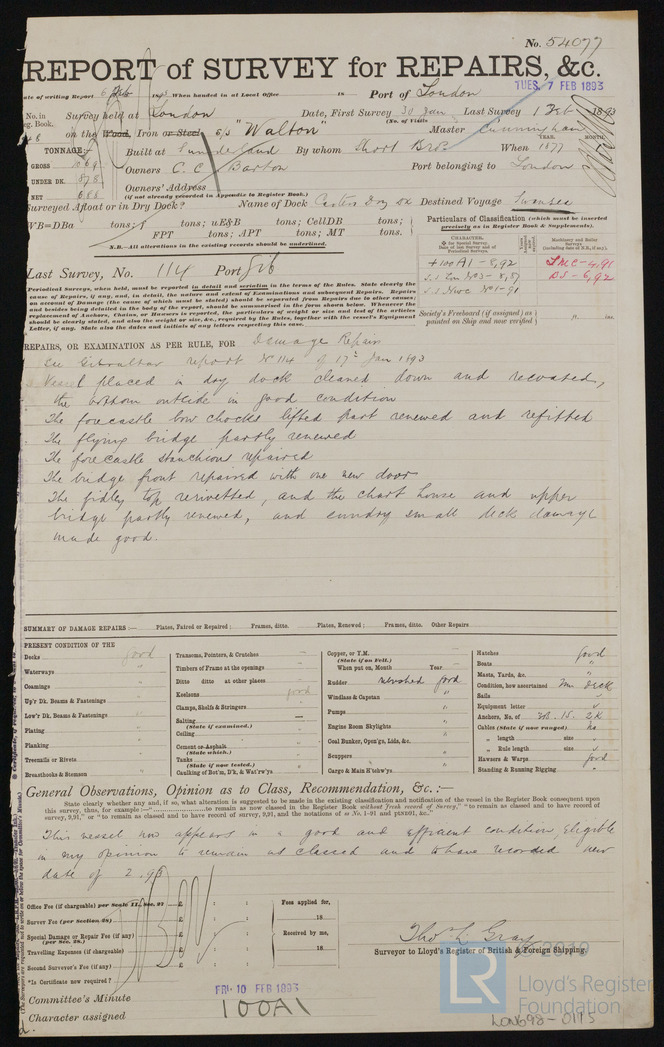 No. 54077
REPORT of SURVEY for REPAIRS, &c.
TUES. 7 FEB 1893
ate of writing Report 6 Feb When handed in at Local Office Port of London
No. in Survey held at London Date, First Survey 30 Jan Last Survey 1 Feb 1893
g. Book. (No. of Visits)
on the Wood, Iron or Steel S/S "Walton" Master Cunningham
TONNAGE Built at Sunderland By whom Short Bros. When 1877
YEAR. MONTH.
GROSS 1069
Owners C. C. Barton Port belonging to London
UNDER DK. 878
Owners' Address
(if not already recorded in Appendix to Register Book.)
NET 688
Surveyed Afloat or in Dry Dock? Name of Dock Dry Dk Destined Voyage Swansea
WB=DBa tons; f tons; uE&B tons; CellDB tons;
FPT tons; APT tons; MT tons.
N.B.—All alterations in the existing records should be underlined.
Particulars of Classification (which must be inserted
precisely as in Register Book & Supplements).
CHARACTER.
Machinery and Boiler
Surveys
(including date of N.B., if any).
+100A1 - 8,92 LMC - 4,91
S.S. Lon No3 - 8,87 BS - 6,92
S.S. Nwc No1-91
Society's Freeboard (if assigned) as
painted on Ship and now verified
Last Survey, No. 114 Port Gib
Periodical Surveys, when held, must be reported in detail and seriatim in the terms of the Rules. State clearly the
cause of Repairs, if any, and, in detail, the nature and extent of Examinations and subsequent Repairs. Repairs
on account of Damage (the cause of which must be stated) should be separated from Repairs due to other causes;
and besides being detailed in the body of the report, should be summarised in the form shown below. Whenever the
replacement of Anchors, Chains, or Hawsers is reported, the particulars of weight or size and test of the articles
should be clearly stated, and also the weight or size, &c., required by the Rules, together with the vessel's Equipment
Letter, if any. State also the dates and initials of any letters respecting this case.
REPAIRS, OR EXAMINATION AS PER RULE, FOR Damage Repairs
See Gibraltar report No 114 of 17th Jan 1893
Vessel placed in dry dock cleaned down and recoated,
the bottom outside in good condition
The forecastle bow chocks lifted part renewed and refitted
The flying bridge partly renewed
The forecastle stanchions repaired
The bridge front repaired with one new door
The fidley top rerivetted, and the chart house and upper
bridge partly renewed, and sundry small deck damage
made good.
SUMMARY OF DAMAGE REPAIRS:— Plates, Faired or Repaired; Frames, ditto. Plates, Renewed; Frames, ditto. Other Repairs
PRESENT CONDITION OF THE
Decks good
Waterways "
Coamings "
Up'r Dk. Beams & Fastenings "
Low'r Dk. Beams & Fastenings "
Plating "
Planking
Treenails or Rivets "
Breasthooks & Stemson "
Transoms, Pointers, & Crutches
Timbers of Frame at the openings
Ditto ditto at other places
Keelsons good
Clamps, Shelfs & Stringers
Salting —
(State if examined.)
Ceiling
Cement or Asphalt
(State which.)
Tanks
(State if now tested.)
Caulking of Bot'm, D'k, & Wat'rw'ys
Copper, or Y.M.
(State if on Felt.)
When put on, Month Year
Rudder good
Windlass & Capstan "
Pumps "
Engine Room Skylights "
Coal Bunker, Open'gs, Lids, &c. "
Scuppers "
Cargo & Main H'tchw'ys "
Hatches good
Boats "
Masts, Yards, &c. "
Condition, how ascertained from deck
Sails "
Equipment letter
Anchors, No. of 3B. 1S. 2K
Cables (State if now ranged) no
" length size
" Rule length size
Hawsers & Warps good
Standing & Running Rigging "
General Observations, Opinion as to Class, Recommendation, &c.:—
State clearly whether any and, if so, what alteration is suggested to be made in the existing classification and notification of the vessel in the Register Book consequent upon
this survey, thus, for example:—" to remain as now classed in the Register Book without fresh record of Survey," or "to remain as classed and to have record of
survey, 9,91," or "to remain as classed and to have record of survey, 9,91, and the notations of ss No. 1-91 and psND91, &c."
This vessel now appears in a good and efficient condition, Eligible
in my opinion to remain as classed and to have recorded new
date of 2.93
Office Fee (if chargeable) per Scale II., Sec. 27 £ : : Fees applied for,
Survey Fee (per Section 28) £ : : 18
Special Damage or Repair Fee (if any) £ : : Received by me,
(per Sec. 28.)
Travelling Expenses (if chargeable) £ : : 18
Second Surveyor's Fee (if any) £ : :
*Is Certificate now required?
Thos. G. Gray
Surveyor to Lloyd's Register of British & Foreign Shipping.
Committee's Minute FRI. 10 FEB 1893
Character assigned 100A1
© 2019
LR
Lloyd's Register
Foundation
LON698-0195